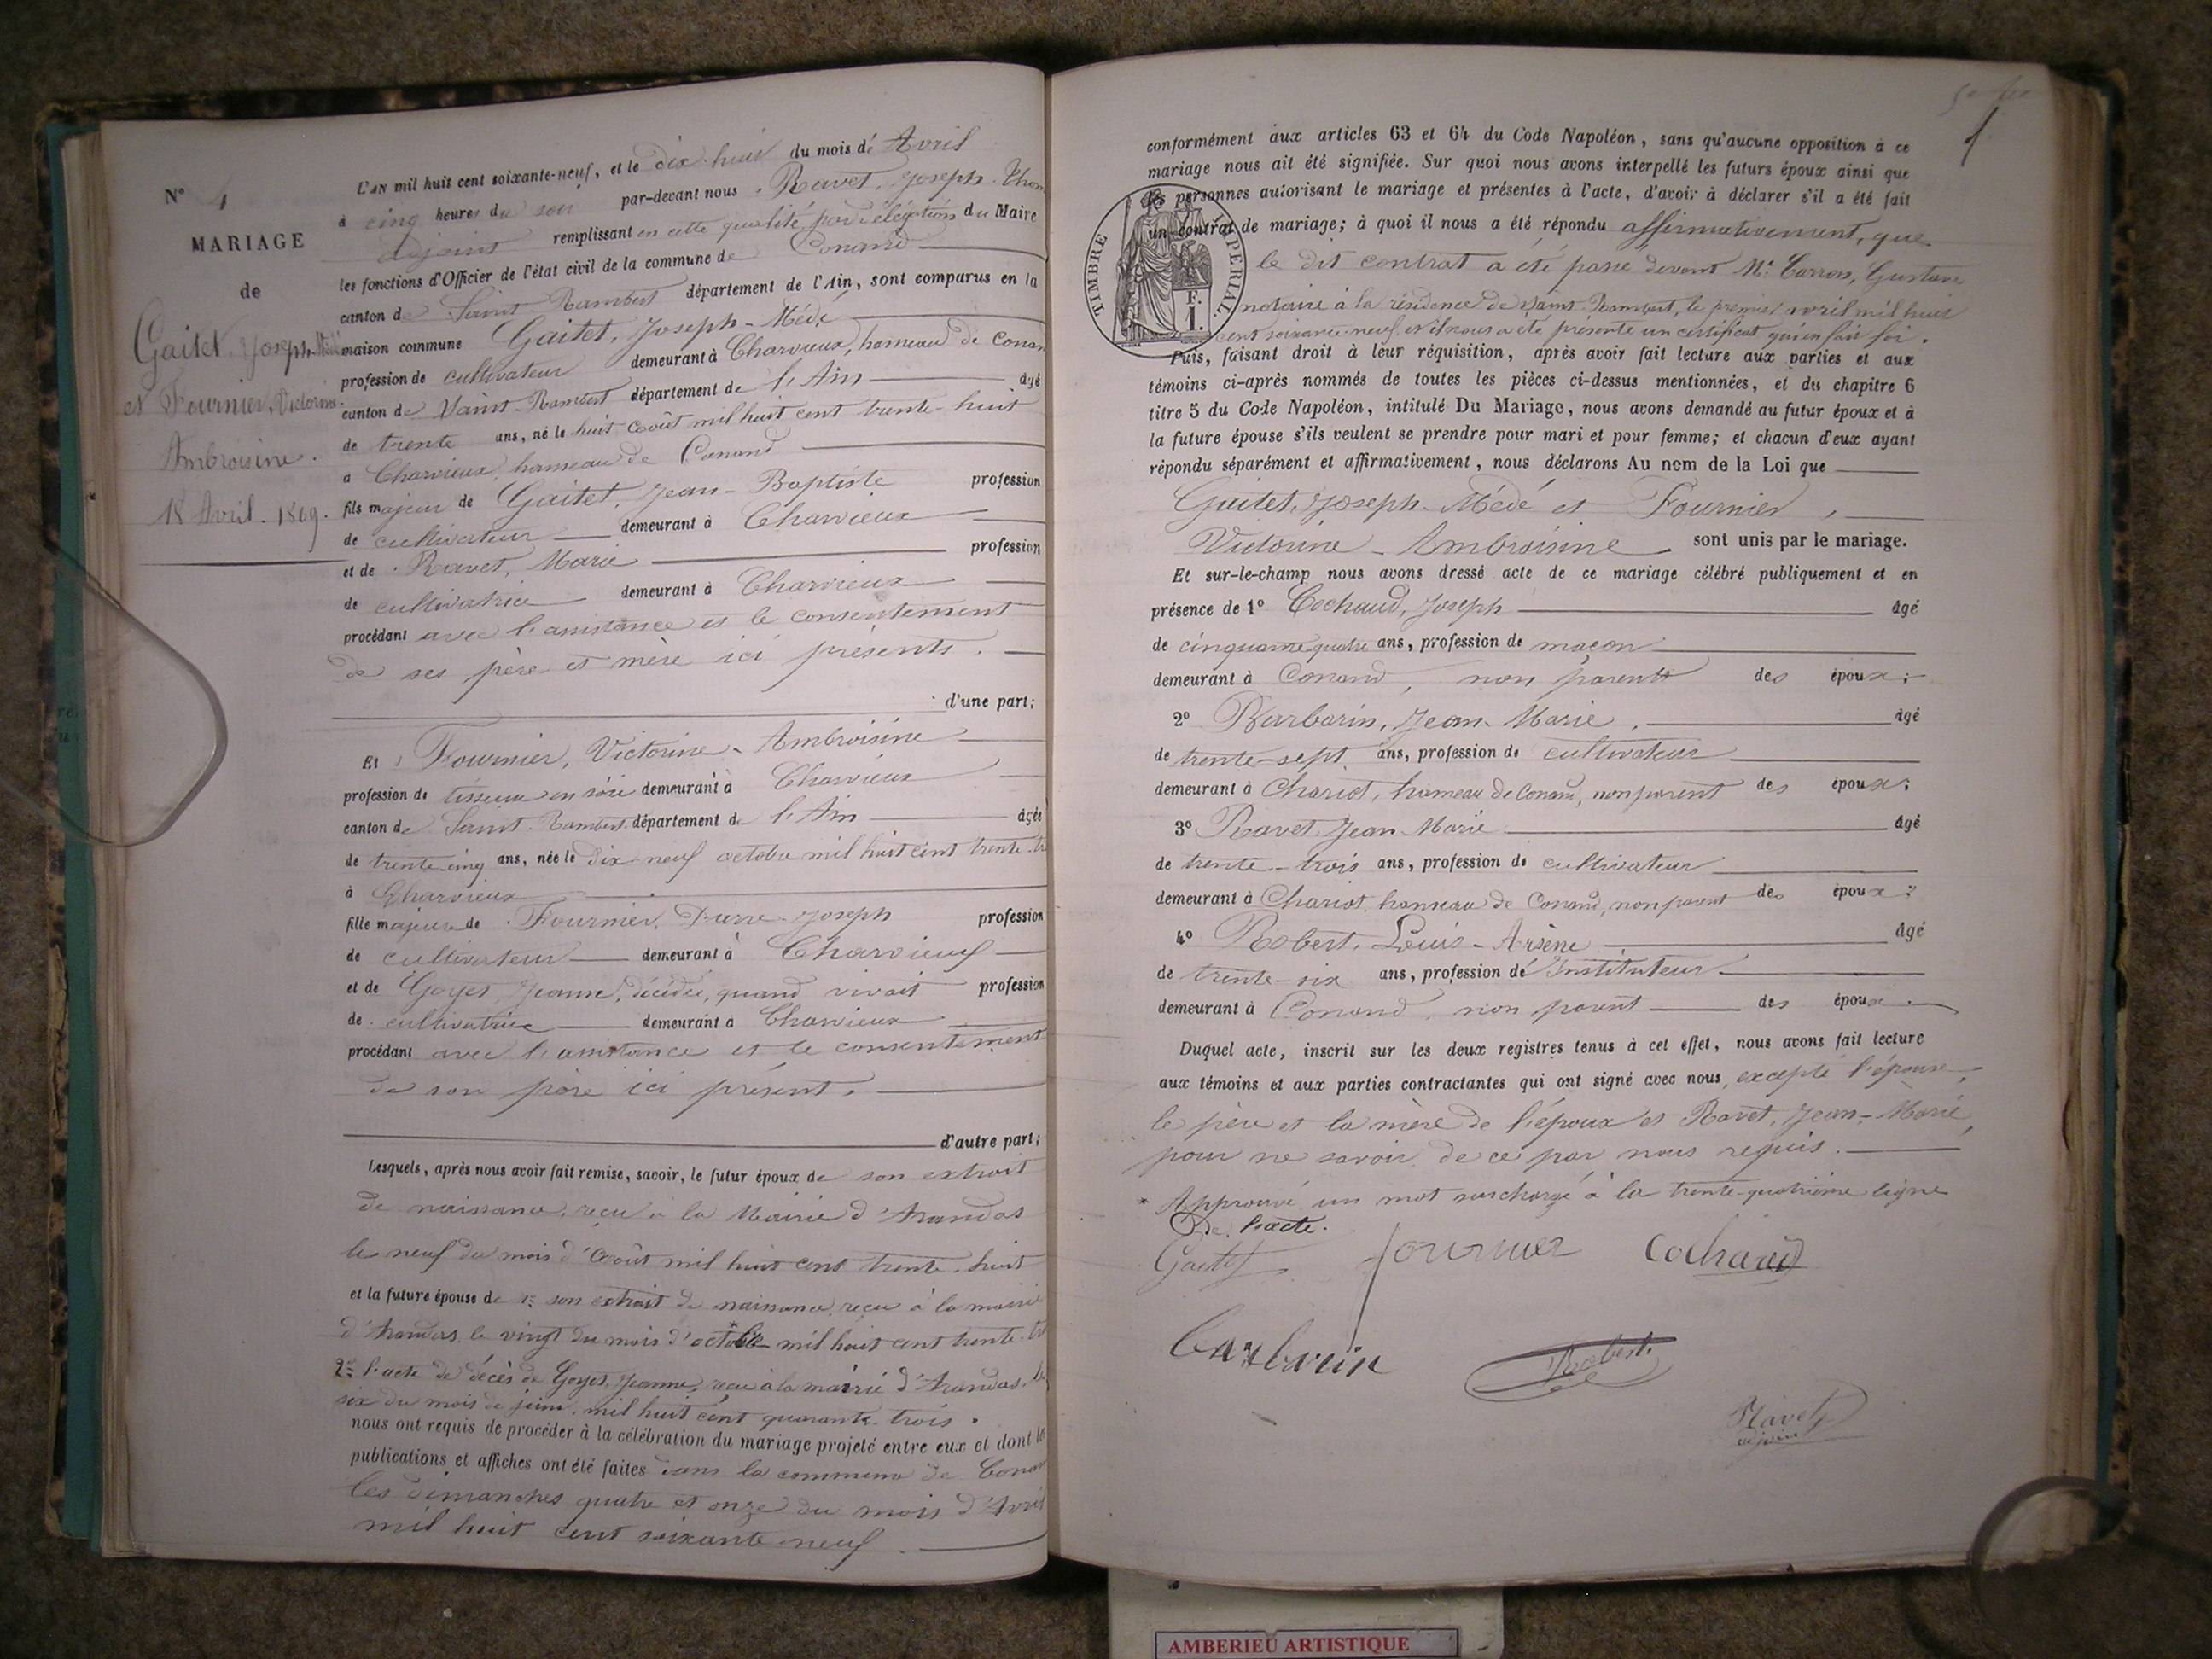 N° 4
MARIAGE
de
Gaitet, Joseph-Médé
et Fournier, Victorine
Ambroisine.
18 Avril. 1869.
L'AN mil huit cent soixante-neuf, et le dix-huit du mois de Avril
à cinq heures du soir par-devant nous Ravet, Joseph-Thom
adjoint remplissant en cette qualité, par délégation du Maire
les fonctions d'Officier de l'état civil de la commune de Conand
canton de Saint Rambert département de l'Ain, sont comparus en la
maison commune Gaitet, Joseph-Médé
profession de cultivateur demeurant à Charvieux, hameau de Conan
canton de Saint-Rambert département de l'Ain âgé
de trente ans, né le huit Août mil huit cent trente-huit
à Charvieux, hameau de Conand
fils majeur de Gaitet, Jean-Baptiste profession
de cultivateur demeurant à Charvieux
et de Ravet, Marie profession
de cultivatrice demeurant à Charvieux
procédant avec l'assistance et le consentement
de ses père et mère ici présents.
d'une part;
Et Fournier, Victorine-Ambroisine
profession de tisseuse en soie demeurant à Charvieux
canton de Saint-Rambert département de l'Ain âgée
de trente-cinq ans, née le dix-neuf octobre mil huit cent trente-tr
à Charvieux
fille majeure de Fournier, Pierre-Joseph profession
de cultivateur demeurant à Charvieux
et de Goyet, Jeanne, décédée, quand vivait profession
de cultivatrice demeurant à Charvieux
procédant avec l'assistance et le consentement
de son père ici présent.
d'autre part;
Lesquels, après nous avoir fait remise, savoir, le futur époux de son extrait
de naissance, reçu à la Mairie d'Arandas
le neuf du mois d'Août mil huit cent trente-huit
et la future épouse de 1° son extrait de naissance reçu à la mairie
d'Arandas, le vingt du mois d'octobre mil huit cent trente-tr
2° l'acte de décès de Goyet, Jeanne, reçu à la mairie d'Arandas, le
six du mois de juin mil huit cent quarante-trois.
nous ont requis de procéder à la célébration du mariage projeté entre eux et dont le
publications et affiches ont été faites dans la commune de Conan
les dimanches quatre et onze du mois d'Avril
mil huit cent soixante-neuf.
1
conformément aux articles 63 et 64 du Code Napoléon, sans qu'aucune opposition à ce
mariage nous ait été signifiée. Sur quoi nous avons interpellé les futurs époux ainsi que
les personnes autorisant le mariage et présentes à l'acte, d'avoir à déclarer s'il a été fait
un contrat de mariage; à quoi il nous a été répondu affirmativement, que
le dit contrat a été passé devant Me Carron, Gustave
notaire à la résidence de Saint-Rambert, le premier avril mil huit
cent soixante-neuf et il nous a été présenté un certificat qui en fait foi.
TIMBRE IMPERIAL.
F.
1.
Puis, faisant droit à leur réquisition, après avoir fait lecture aux parties et aux
témoins ci-après nommés de toutes les pièces ci-dessus mentionnées, et du chapitre 6
titre 5 du Code Napoléon, intitulé Du Mariage, nous avons demandé au futur époux et à
la future épouse s'ils veulent se prendre pour mari et pour femme; et chacun d'eux ayant
répondu séparément et affirmativement, nous déclarons Au nom de la Loi que
Gaitet, Joseph-Médé et Fournier,
Victorine-Ambroisine sont unis par le mariage.
Et sur-le-champ nous avons dressé acte de ce mariage célébré publiquement et en
présence de 1° Cochaud, Joseph âgé
de cinquante quatre ans, profession de maçon
demeurant à Conand, non parent des époux;
2° Barbarin, Jean-Marie, âgé
de trente-sept ans, profession de cultivateur
demeurant à Chariot, hameau de Conand, non parent des époux;
3° Ravet, Jean Marie âgé
de trente-trois ans, profession de cultivateur
demeurant à Chariot, hameau de Conand, non parent des époux;
4° Robert, Louis-Arsène âgé
de trente-six ans, profession de Instituteur
demeurant à Conand, non parent des époux.
Duquel acte, inscrit sur les deux registres tenus à cet effet, nous avons fait lecture
aux témoins et aux parties contractantes qui ont signé avec nous, excepté l'épouse,
le père et la mère de l'époux et Ravet, Jean-Marie,
pour ne savoir de ce par nous requis.
* Approuvé un mot surchargé à la trente-quatrième ligne
de l'acte.
Gaitet fournier Cochaud
Barbarin Robert
Ravet
adjoint
AMBERIEU ARTISTIQUE